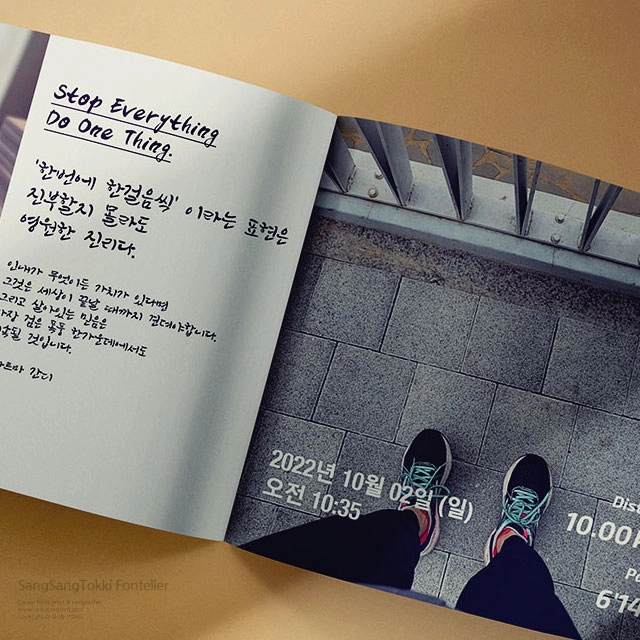 Stop Everything
Do One Thing.
'한번에 한걸음씩' 이라는 표현은
진부할지 몰라도
영원한 진리다.
인내가 무엇이든 가치가 있다면
그것은 세상이 끝날 때까지 견뎌야합니다.
그리고 살아있는 믿음은
가장 검은 폭풍 한가운데에서도
것입니다.
간디
2022년 10월 02일 (일)
오전 10:35
10.00
6'14
SangSangTokki Fontelier